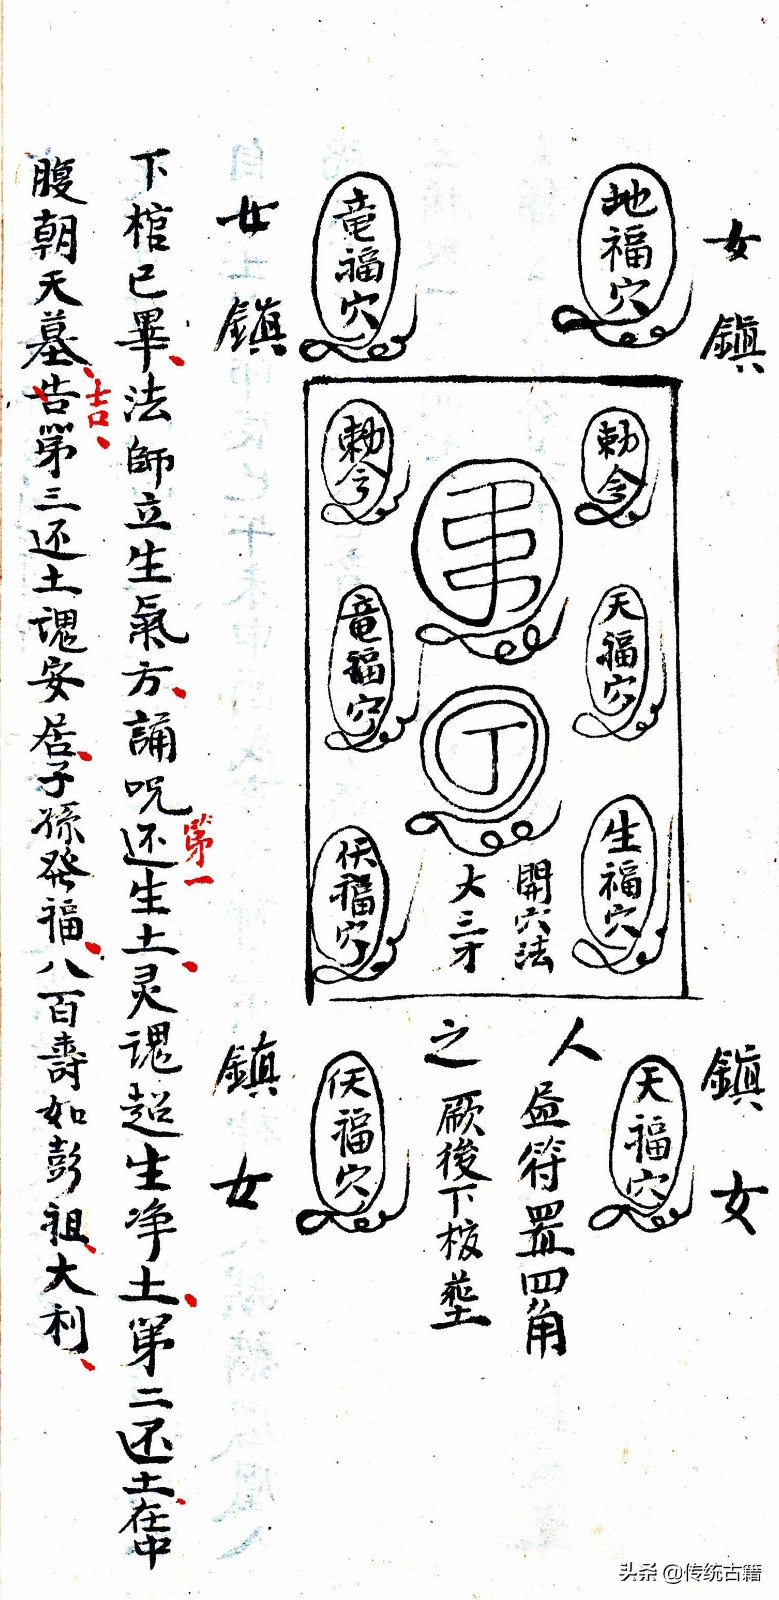 女鎮
地福穴
竜福穴
女鎮
勅令
勅令
天福穴
竜福穴
丁
生福穴
開穴法
大三才
伏福穴
鎮女
天福穴
人
之
符置四角
厥後下
伏福穴
鎮女
下棺已畢、法師立生氣方、誦咒还生土、灵魂超生净土、第二还土、在中
第一
腹朝天墓、告、第三还土魂安居、子孫発福、八百壽如彭祖、大利、
吉、
头条 @传统古籍